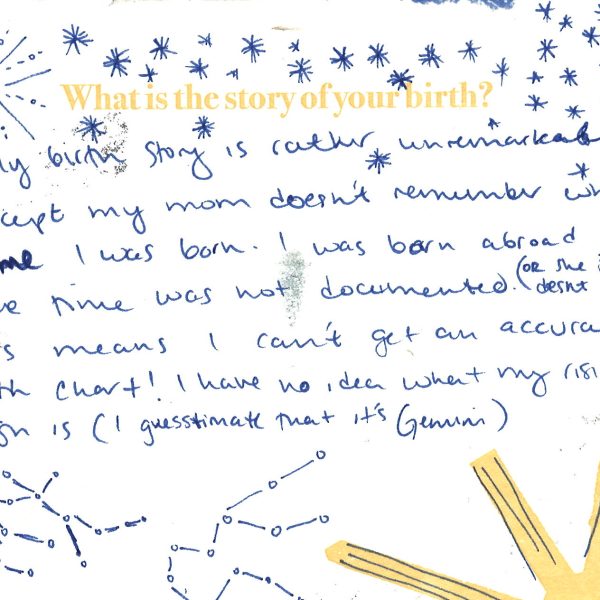 What is the story of your birth?
ly birth story is rather unremarkabl
cept my mom doesn't remember wh
me I was born. I was born abroad
e time was not documented. (or she
doesnt
s means I can't get an accura
th chart! I have no idea what my risi
gn is (I guesstimate that it's Gemini)